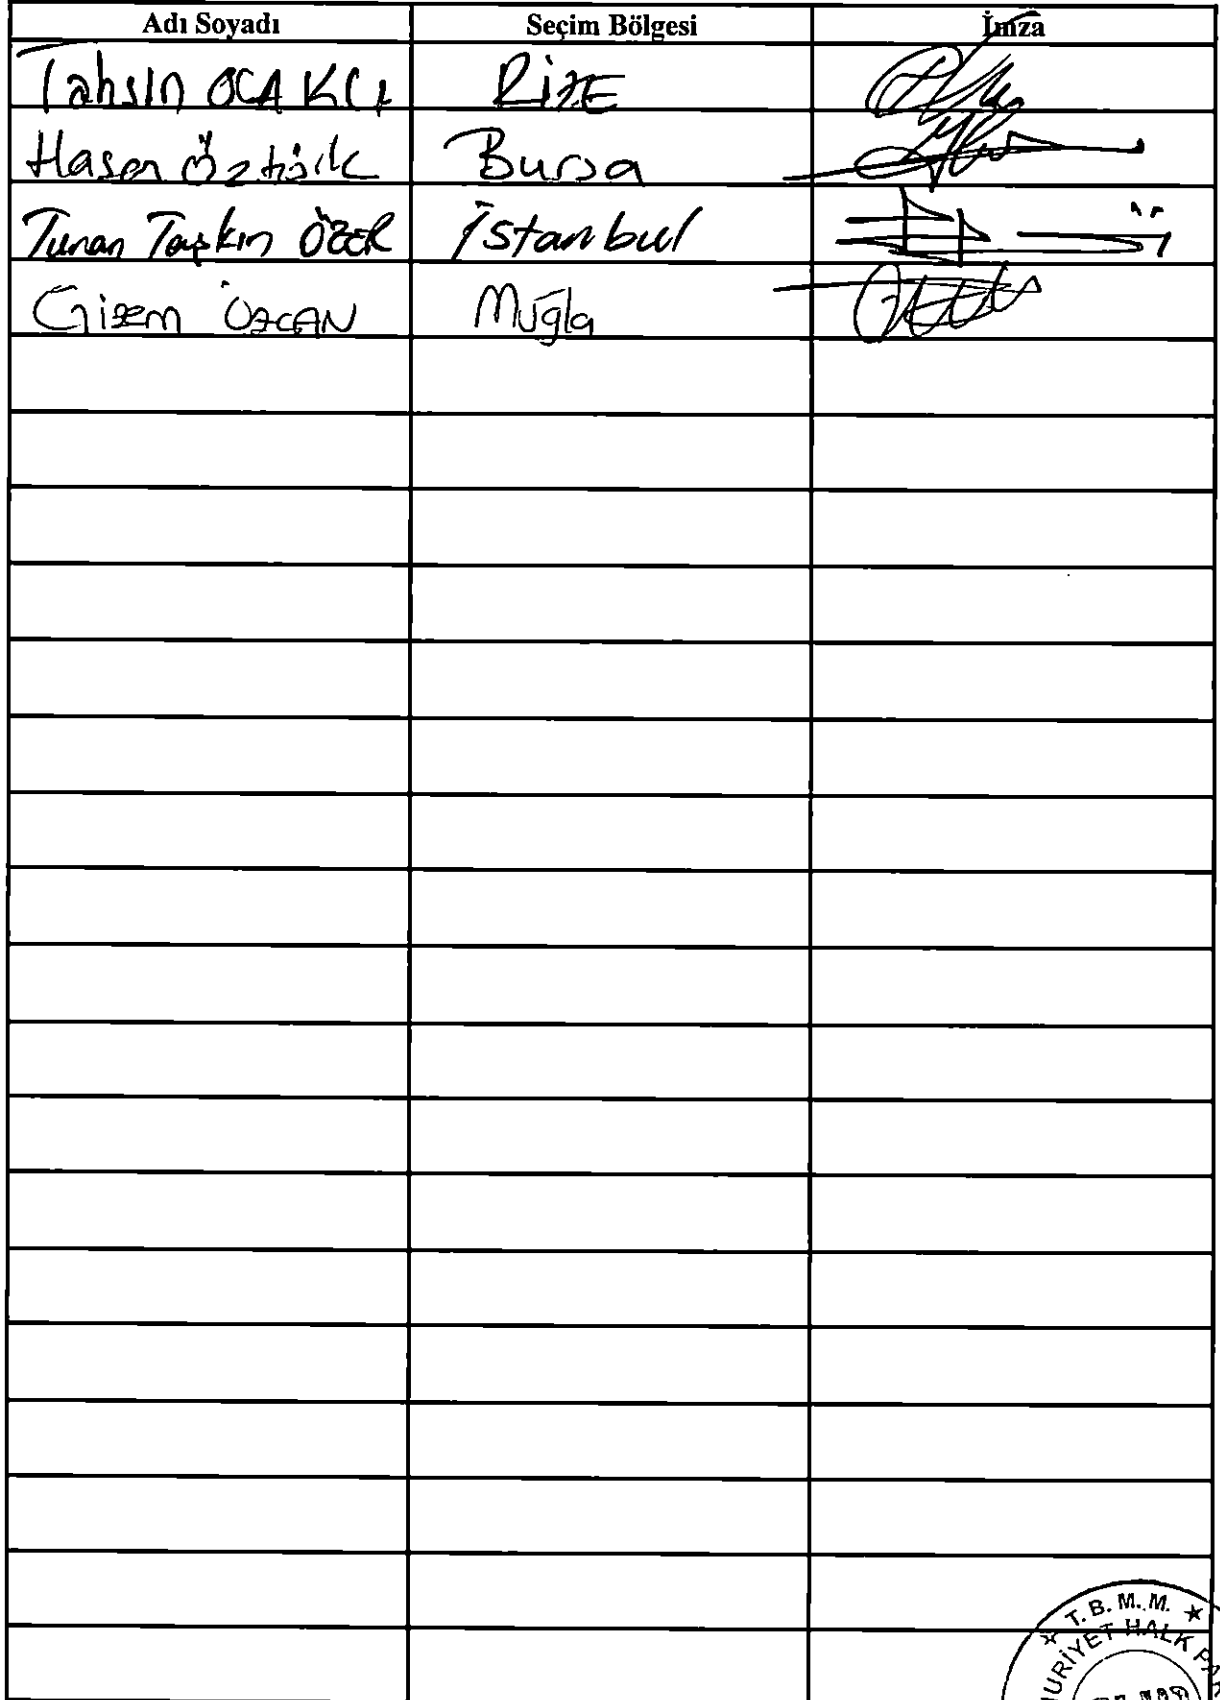 Adı Soyadı Seçim Bölgesi İmza
Tahsin OCAKCI RİZE
Hasan Öztürk Bursa
Turan Taşkın ÖZER İstanbul
Gizem ÖZCAN Muğla
T.B.M.M.
HALK